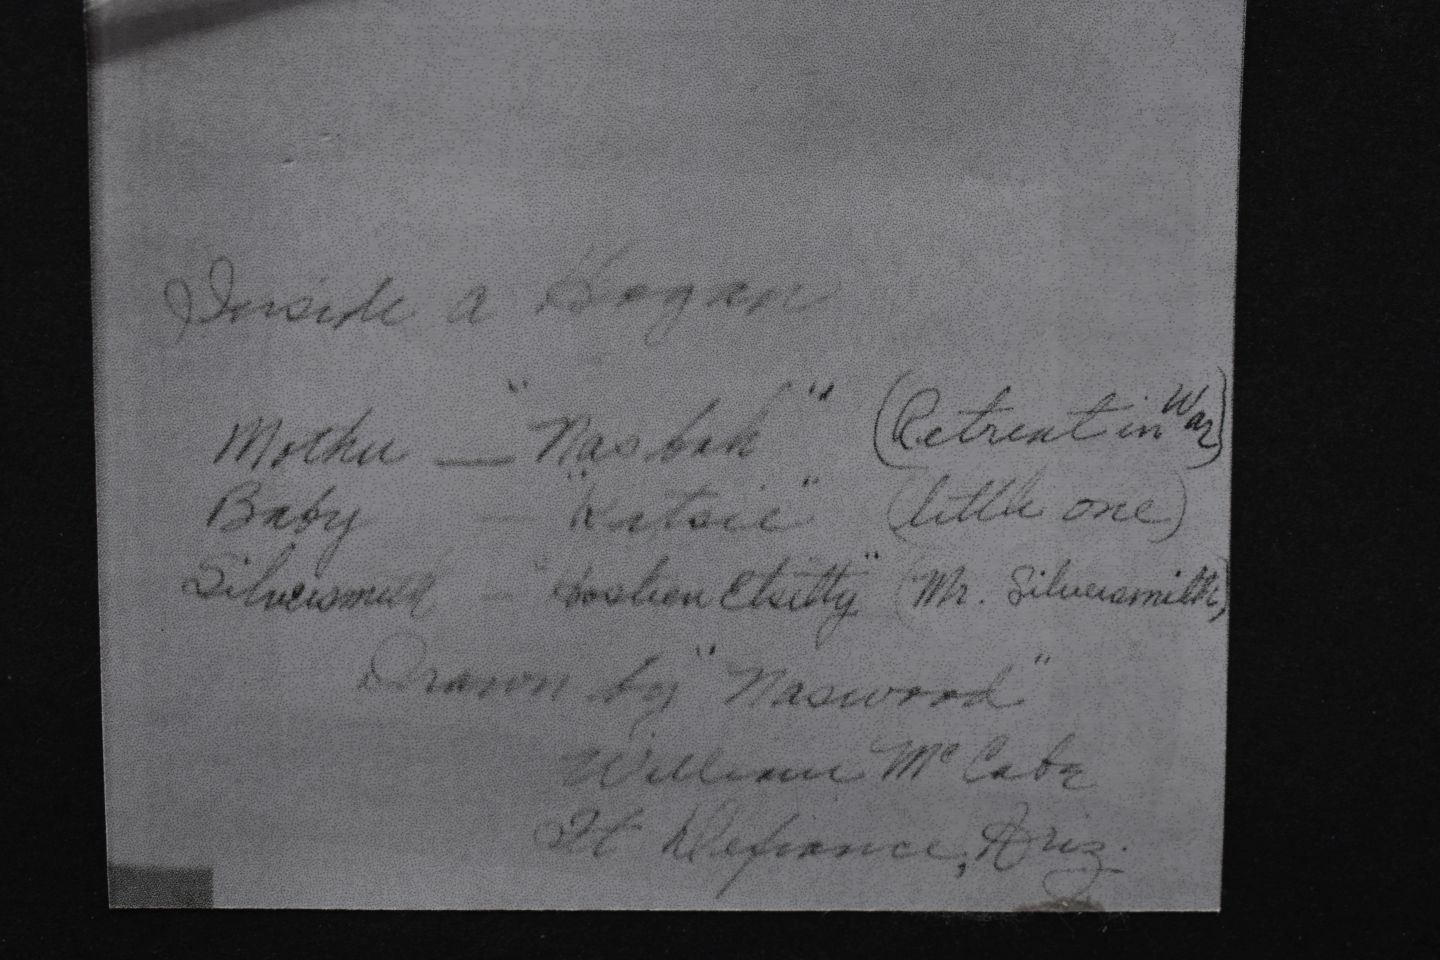 Inside a Hogan
Mother — "Nasbah" (Retreat in War)
Baby — "Katsie" (little one)
Silversmith — "Hostien Etsitty" (Mr. Silversmith)
Drawn by "Naswood"
William McCabe
Ft Defiance, Ariz.